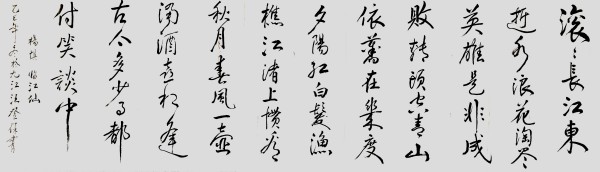 滚〻長江東
逝水浪花淘尽
英雄是非成
敗轉頭空青山
依舊在幾度
夕陽紅白髮漁
樵江渚上惯看
秋月春風一壺
濁酒喜相逢
古今多少事都
付笑談中
楊慎 临江仙